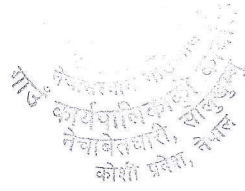 नेचासल्यान गाउँपालिका
गाउँ कार्यपालिकाको कार्यालय
नेचाबेतघारी, सोलुखुम्बु
कोशी प्रदेश, नेपाल